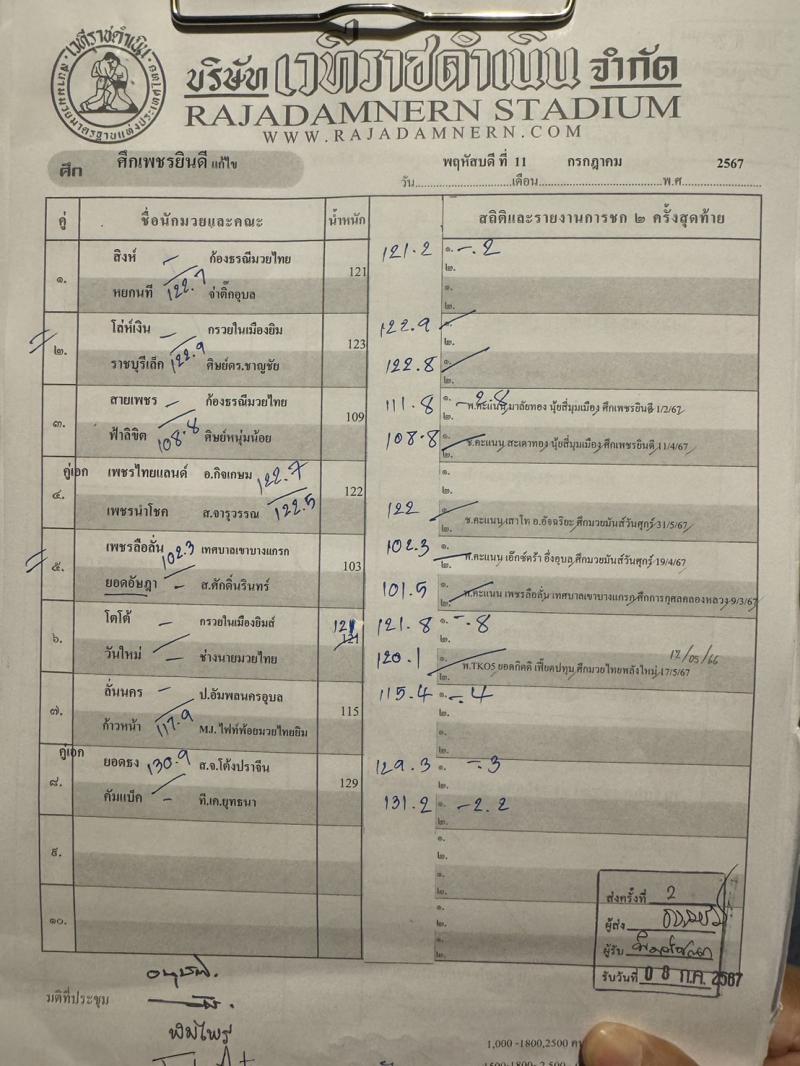 เวทีราชดำเนิน
บริษัท เวทีราชดำเนิน จำกัด
RAJADAMNERN STADIUM
WWW.RAJADAMNERN.COM
ศึก ศึกเพชรยินดี แก้ไข
พฤหัสบดี ที่ 11 กรกฎาคม 2567
วัน เดือน พ.ศ
คู่ ชื่อนักมวยและคณะ น้ำหนัก สถิติและรายงานการชก ๒ ครั้งสุดท้าย
๑. สิงห์ ก้องธรณีมวยไทย 121 121.2 ๑. -.2
๒.
หยกนที 122.7 จ่าติ๊กอุบล ๑.
๒.
๒. โล่ห์เงิน กรวยในเมืองยิม 123 122.9 ๑.
๒.
ราชบุรีเล็ก 122.9 ศิษย์ดร.ชาญชัย 122.8 ๑.
๒.
๓. สายเพชร ก้องธรณีมวยไทย 109 111.8 ๑. -2.8
๒. พ.คะแนน มาลัยทอง นุ้ยสี่มุมเมือง ศึกเพชรยินดี 1/2/67
ฟ้าลิขิต 108.8 ศิษย์หนุ่มน้อย 108.8 ๑.
๒. ช.คะแนน สะเดาทอง นุ้ยสี่มุมเมือง ศึกเพชรยินดี 11/4/67
คู่เอก
๔. เพชรไทยแลนด์ อ.กิจเกษม 122.7 122 ๑.
๒.
เพชรนำโชค ส.จารุวรรณ 122.5 122 ๑.
๒. ช.คะแนน เสาโท อ.อัจฉริยะ ศึกมวยมันส์วันศุกร์ 31/5/67
๕. เพชรลือลั่น 102.3 เทศบาลเขาบางแกรก 103 102.3 ๑.
๒. พ.คะแนน เอ็กซ์ตร้า อึ่งอุบล ศึกมวยมันส์วันศุกร์ 19/4/67
ยอดอัษฎา ส.ศักดิ์นรินทร์ 101.5 ๑.
๒. พ.คะแนน เพชรลือลั่น เทศบาลเขาบางแกรก ศึกการกุศลคลองหลวง 9/3/67
๖. โตโต้ กรวยในเมืองยิมส์ 121 121 121.8 ๑. -.8
๒.
วันใหม่ ช่างนายมวยไทย 120.1 ๑. 17/05/66
๒. พ.TKO5 ยอดกิตติ เฟี้ยตปทุม ศึกมวยไทยพลังใหม่ 17/5/67
๗. ลั่นนคร ป.อัมพลนครอุบล 115 115.4 ๑. -.4
๒.
ก้าวหน้า 117.9 MJ. ไฟท์พ้อยมวยไทยยิม ๑.
๒.
คู่เอก
๘. ยอดธง 130.9 ส.จ.โต้งปราจีน 129 129.3 ๑. -.3
๒.
คัมแบ็ค ที.เค.ยุทธนา 131.2 ๑. -2.2
๒.
๙. ๑.
๒.
๑.
๒.
๑๐. ๑.
๒.
๑.
๒.
ส่งครั้งที่ 2
ผู้ส่ง
ผู้รับ
รับวันที่ 08 ก.ค. 2567
มติที่ประชุม
พิมไพร
1,000 -1800,2500